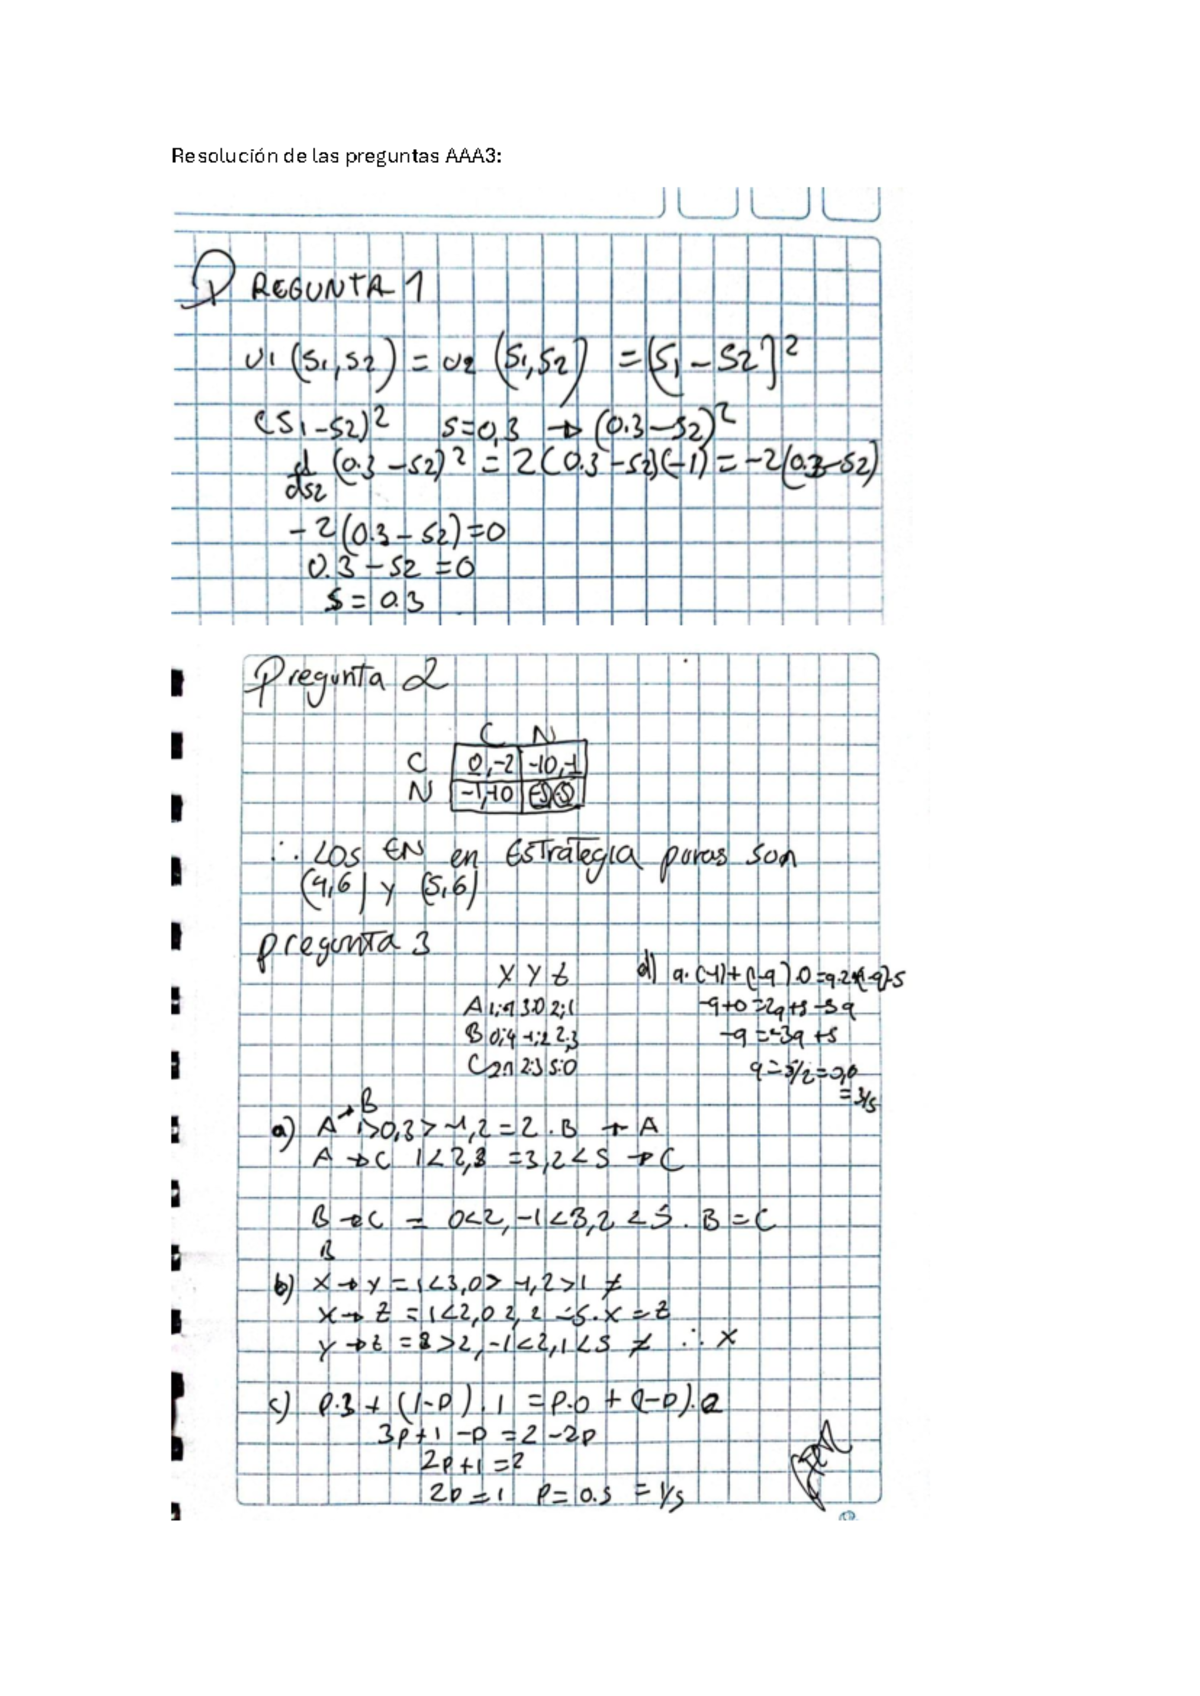 Resolución de las preguntas AAA3:
PREGUNTA 1
U1 (S1,S2) = U2 (S1,S2) = [S1 - S2]²
(S1-S2)² S=0,3 → (0.3-S2)²
d/dS2 (0.3-S2)² = 2(0.3-S2)(-1) = -2(0.3-S2)
-2(0.3-S2)=0
0.3-S2=0
S=0.3
Pregunta 2
C N
C 0,-2 -10,-1
N -1,-10
∴ Los EN en EsTraTegIa puras son
(4,6) y (5,6)
pregunta 3
X Y Z
A 1;-1 3:0 2;1
B 0;4 -1;2 2;3
C 2:1 2:3 5:0
d) q.(-1)+(1-q).0=q.2+(1-q).5
-q+0=2q+5-5q
-q=-3q+5
q=3/2=0,6
=3/5
a) A → B 1>0,3>-1,2=2.B → A
A → C 1<2,3 =3,2<5 → C
B → C = 0<2,-1<3,2<5. B=C
B
b) X → Y = 1<3,0>-1,2>1 ≠
X → Z = 1<2,0 2,2 =5.X=Z
Y → Z = 3>2,-1<2,1<5 ≠ ∴ X
c) P.3+(1-P).1=P.0+(1-P).2
3P+1-P=2-2P
2P+1=2
2P=1 P=0.5 =1/5